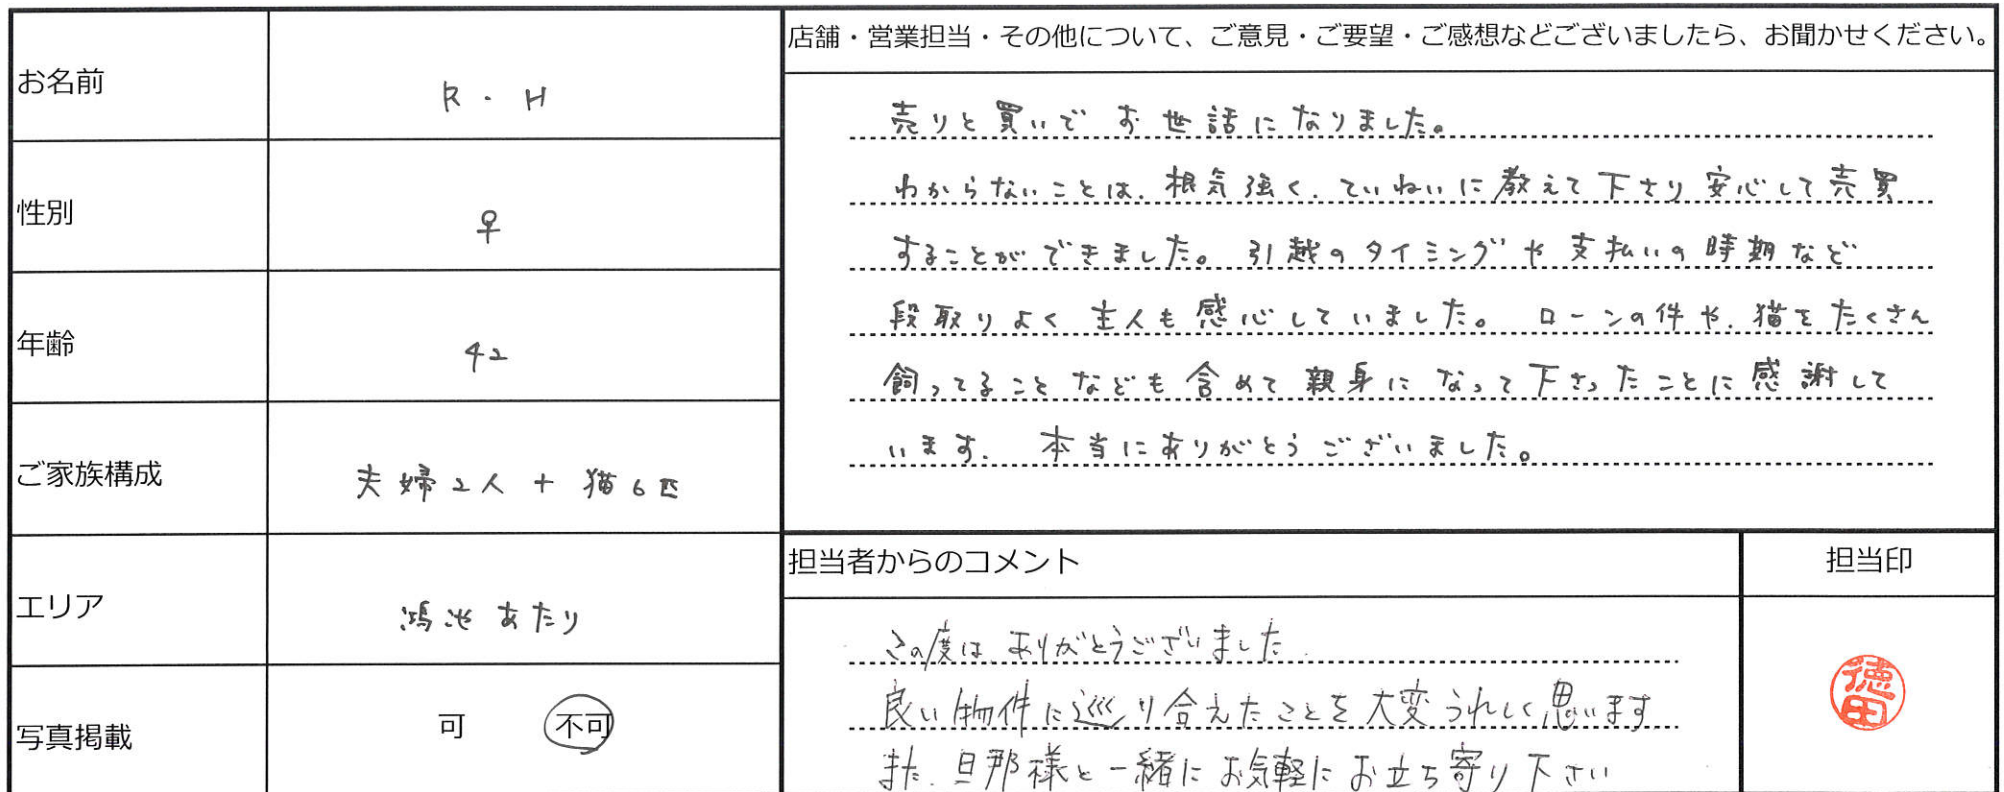 お名前
R・H
性別
♀
年齢
42
ご家族構成
夫婦2人+猫6匹
エリア
鴻池あたり
写真掲載
可 不可
店舗・営業担当・その他について、ご意見・ご要望・ご感想などございましたら、お聞かせください。
売りと買いでお世話になりました。
わからないことは、根気強く、ていねいに教えて下さり安心して売買
することができました。引越のタイミングや支払いの時期など
段取りよく主人も感心していました。ローンの件や、猫をたくさん
飼ってることなども含めて親身になって下さったことに感謝して
います。本当にありがとうございました。
担当者からのコメント
この度はありがとうございました
良い物件に巡り合えたことを大変うれしく思います
また、旦那様と一緒にお気軽にお立ち寄り下さい
担当印
徳田